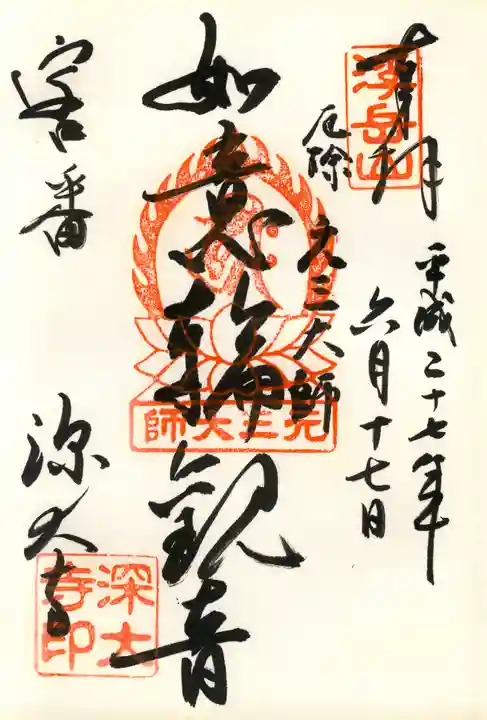 奉拝
平成二十七年
六月十七日
浮岳山
厄除 元三大師
如意輪観音
元三大師
客番
深大寺
深大寺印